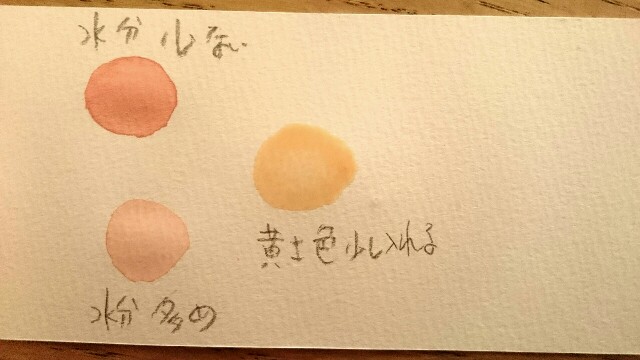 水分 少ない
黄土色少し入れる
水分 多め